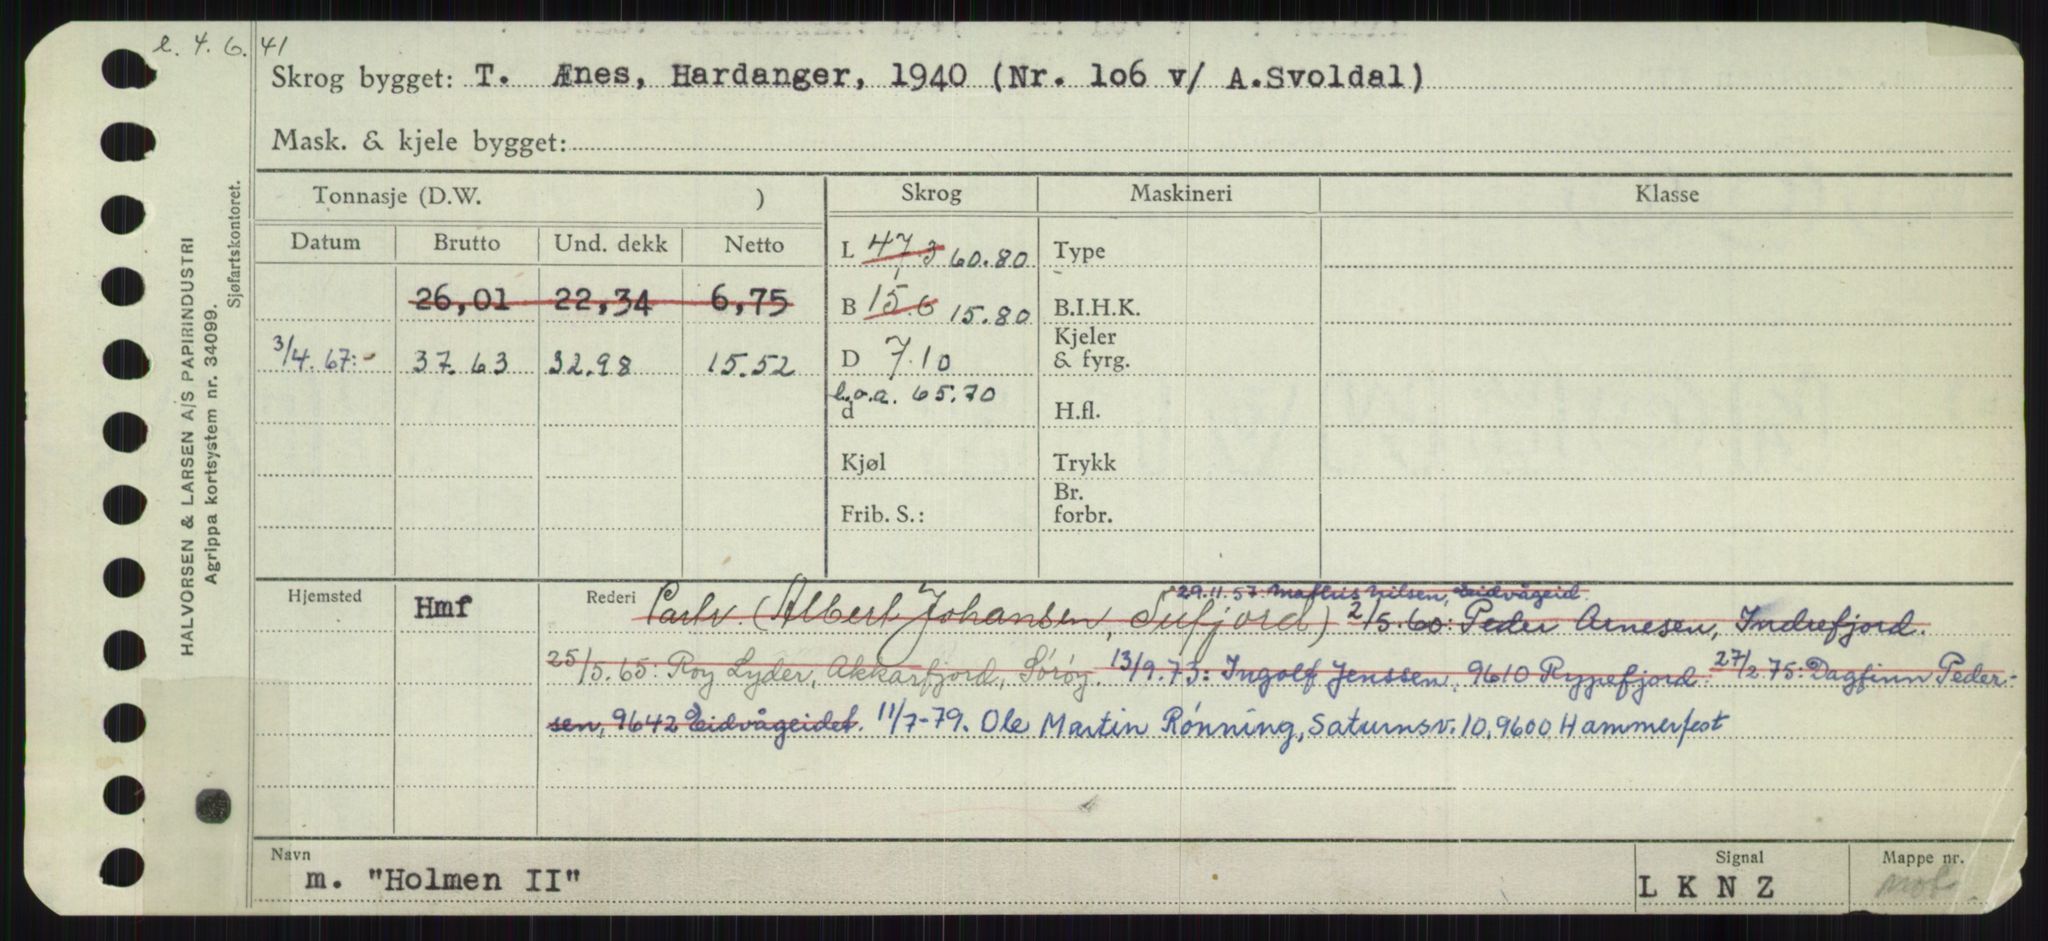 e. 4. 6. 41
Skrog bygget: T. Ænes, Hardanger, 1940 (Nr. 1o6 v/ A.Svoldal)
Mask. & kjele bygget:
HALVORSEN & LARSEN A/S PAPIRINDUSTRI
Agrippa kortsystem nr. 34099.
Sjøfartskontoret.
Tonnasje (D.W. )
Skrog
Maskineri
Klasse
Datum
Brutto
Und. dekk
Netto
26,01 22,34 6,75
3/4.67:- 37.63 32.98 15.52
L 47,3 60.80
B 15.6 15.80
D 7.10
l.o.a. 65.70
d
Kjøl
Frib. S.:
Type
B.I.H.K.
Kjeler
& fyrg.
H.fl.
Trykk
Br.
forbr.
Hjemsted Hmf
Rederi
29.11.57: Nilsen, Eidvågeid.
Partr. (Albert Johansen, ) 2/5.60: Peder Arnesen, Indrefjord.
25/5.65: Roy Lyder, Akkarfjord, Sørøy. 13/9.73: Ingolf Jenssen, 9610 Rypefjord. 27/2.75: Dagfinn Peder-
sen, 9642 Eidvågeidet. 11/7-79. Ole Martin Rønning, Saturnsv. 10, 9600 Hammerfest
Navn
m. "Holmen II"
Signal
L K N Z
Mappe nr.
mot